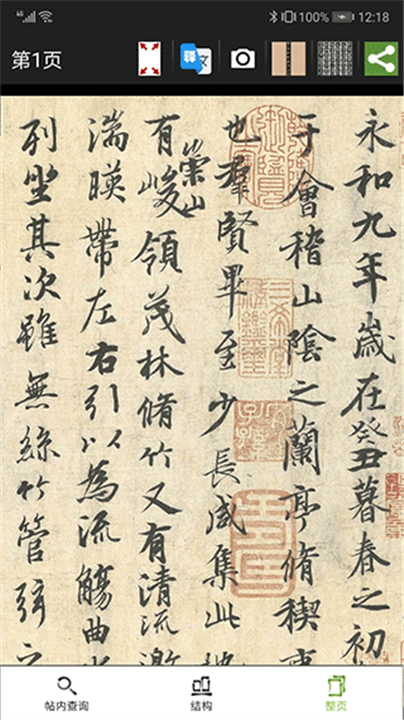 4G 100% 12:18
第1页
譯 文
永和九年歲在癸丑暮春之初
于會稽山陰之蘭亭脩稧事
也羣賢畢至少長咸集此地
有崇山峻領茂林脩竹又有清流激
湍暎帶左右引以為流觴曲水
列坐其次雖無絲竹管弦之
帖内查询
结构
整页